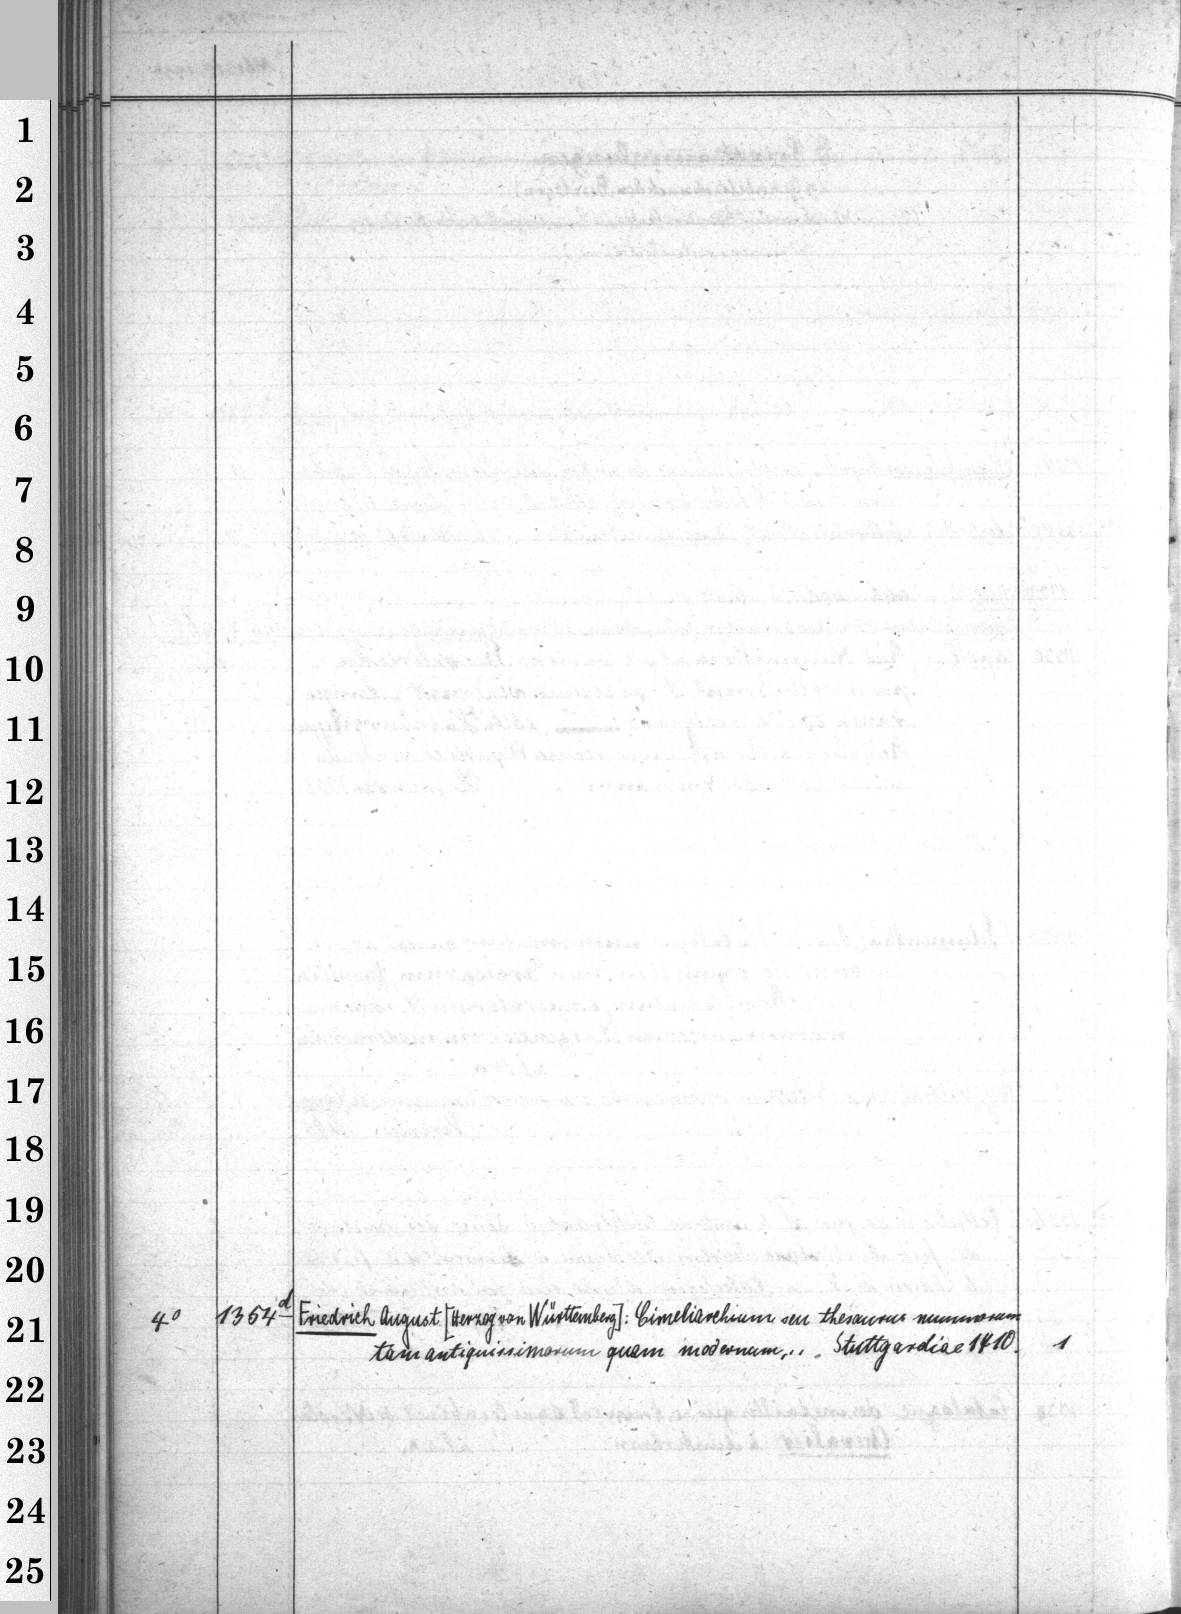 1
2
3
4
5
6
7
8
9
10
11
12
13
14
15
16
17
18
19
20
21
22
23
24
25
4⁰ 1354ᵈ Friedrich August [Herzog von Württemberg]: Cimeliarchium seu thesaurus nummorum
tam antiquissimorum quam modernum... Stuttgardiae 1710. 1